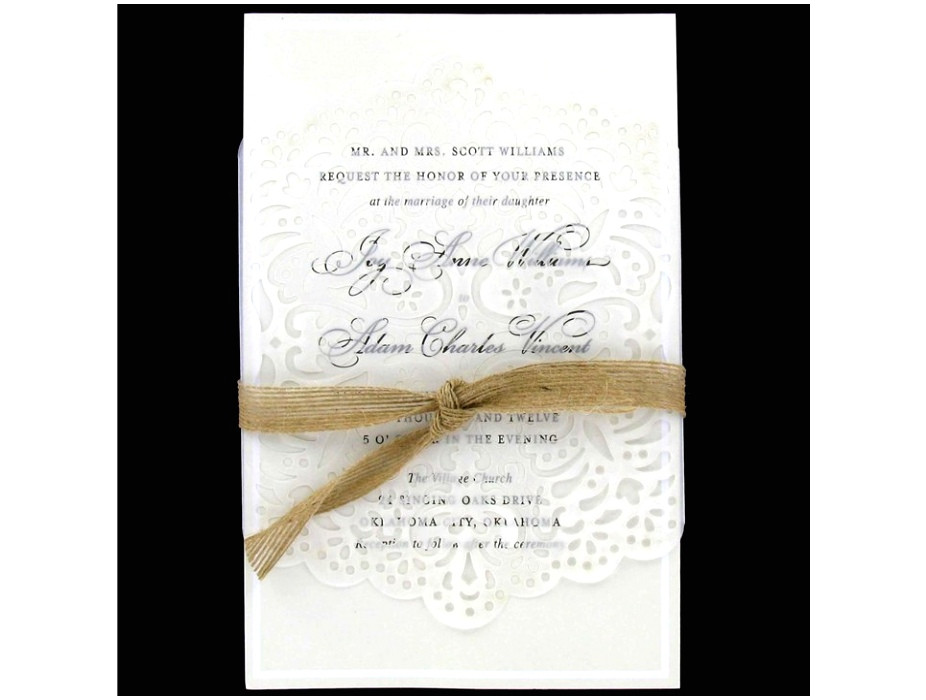 MR. AND MRS. SCOTT WILLIAMS
REQUEST THE HONOR OF YOUR PRESENCE
at the marriage of their daughter
Joy Anne Williams
to
Adam Charles Vincent
AND TWELVE
5 IN THE EVENING
The Village Church
SINGING OAKS DRIVE
OKLAHOMA CITY, OKLAHOMA
Reception to follow after the ceremony